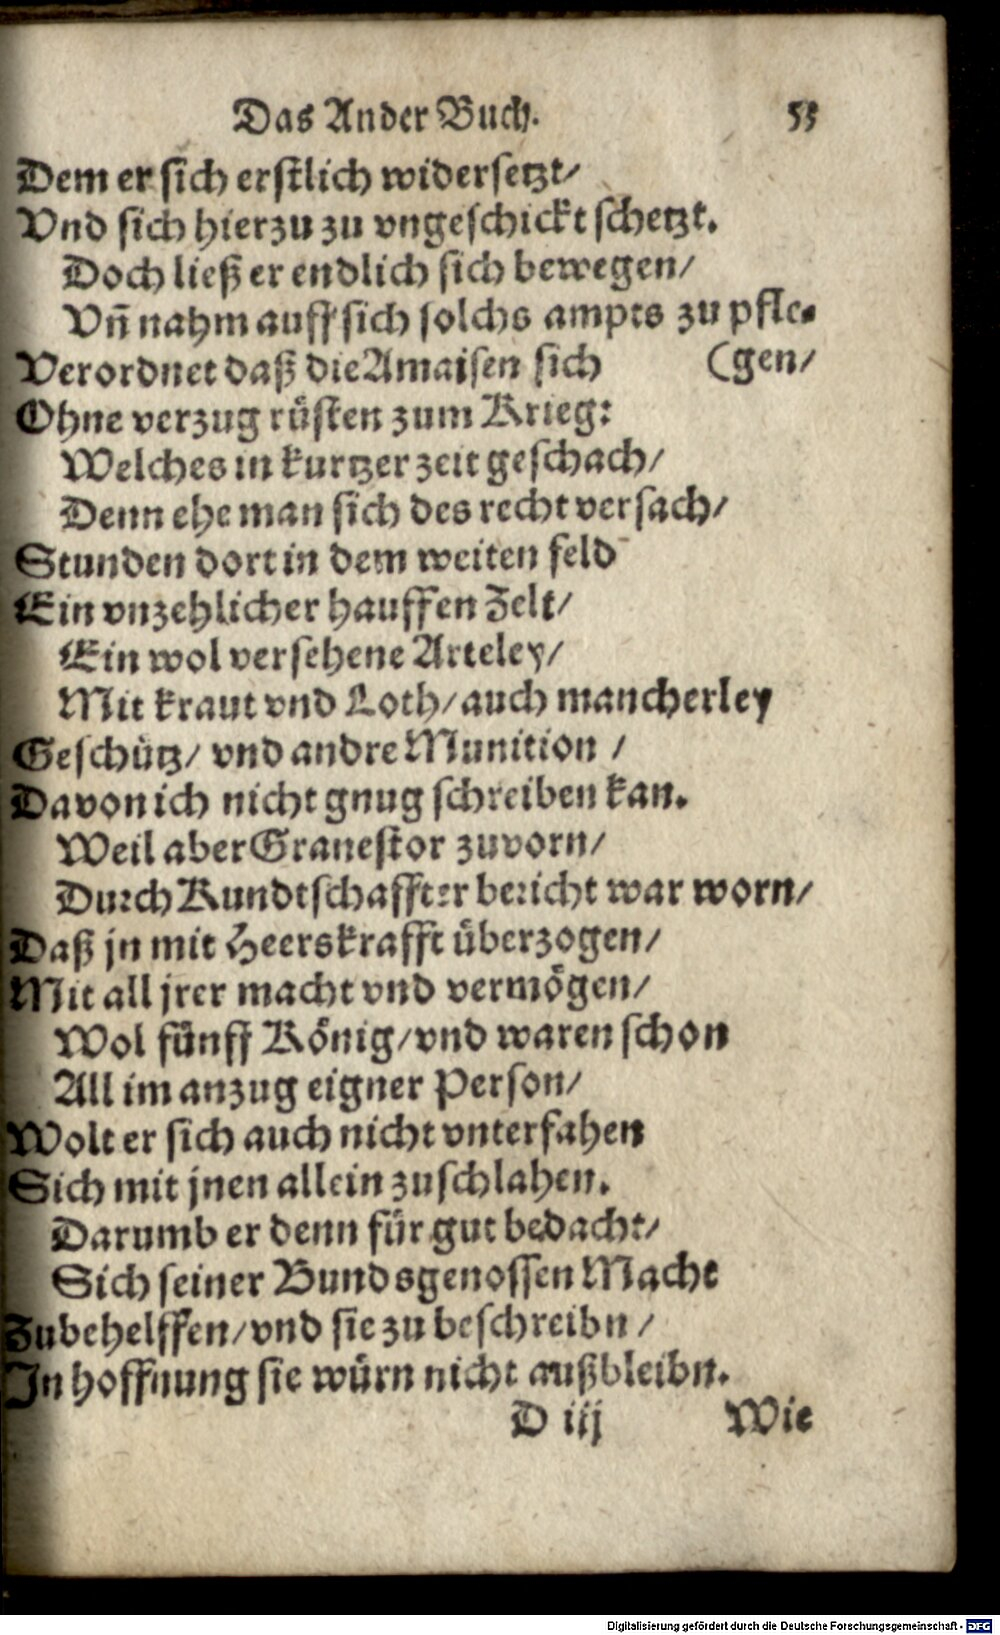 Das Ander Buch. 55
Dem er sich erstlich widersetzt/
Vnd sich hierzu zu vngeschickt schetzt.
Doch ließ er endlich sich bewegen/
Vñ nahm auff sich solchs ampts zu pfle-
Verordnet daß die Amaisen sich (gen/
Ohne verzug rüsten zum Krieg:
Welches in kurtzer zeit geschach/
Denn ehe man sich des recht versach/
Stunden dort in dem weiten feld
Ein vnzehlicher hauffen Zelt/
Ein wol versehene Arteley/
Mit kraut vnd Loth/ auch mancherley
Geschütz/ vnd andre Munition /
Davon ich nicht gnug schreiben kan.
Weil aber Granestor zuvorn/
Durch Kundtschaffter bericht war worn/
Daß jn mit Heerskrafft überzogen/
Mit all jrer macht vnd vermögen/
Wol fünff König/ vnd waren schon
All im anzug eigner Person/
Wolt er sich auch nicht vnterfahen
Sich mit jnen allein zuschlahen.
Darumb er denn für gut bedacht/
Sich seiner Bundsgenossen Macht
Zubehelffen/ vnd sie zu beschreibn /
In hoffnung sie würn nicht außbleibn.
D iij Wie
Digitalisierung gefördert durch die Deutsche Forschungsgemeinschaft - DFG